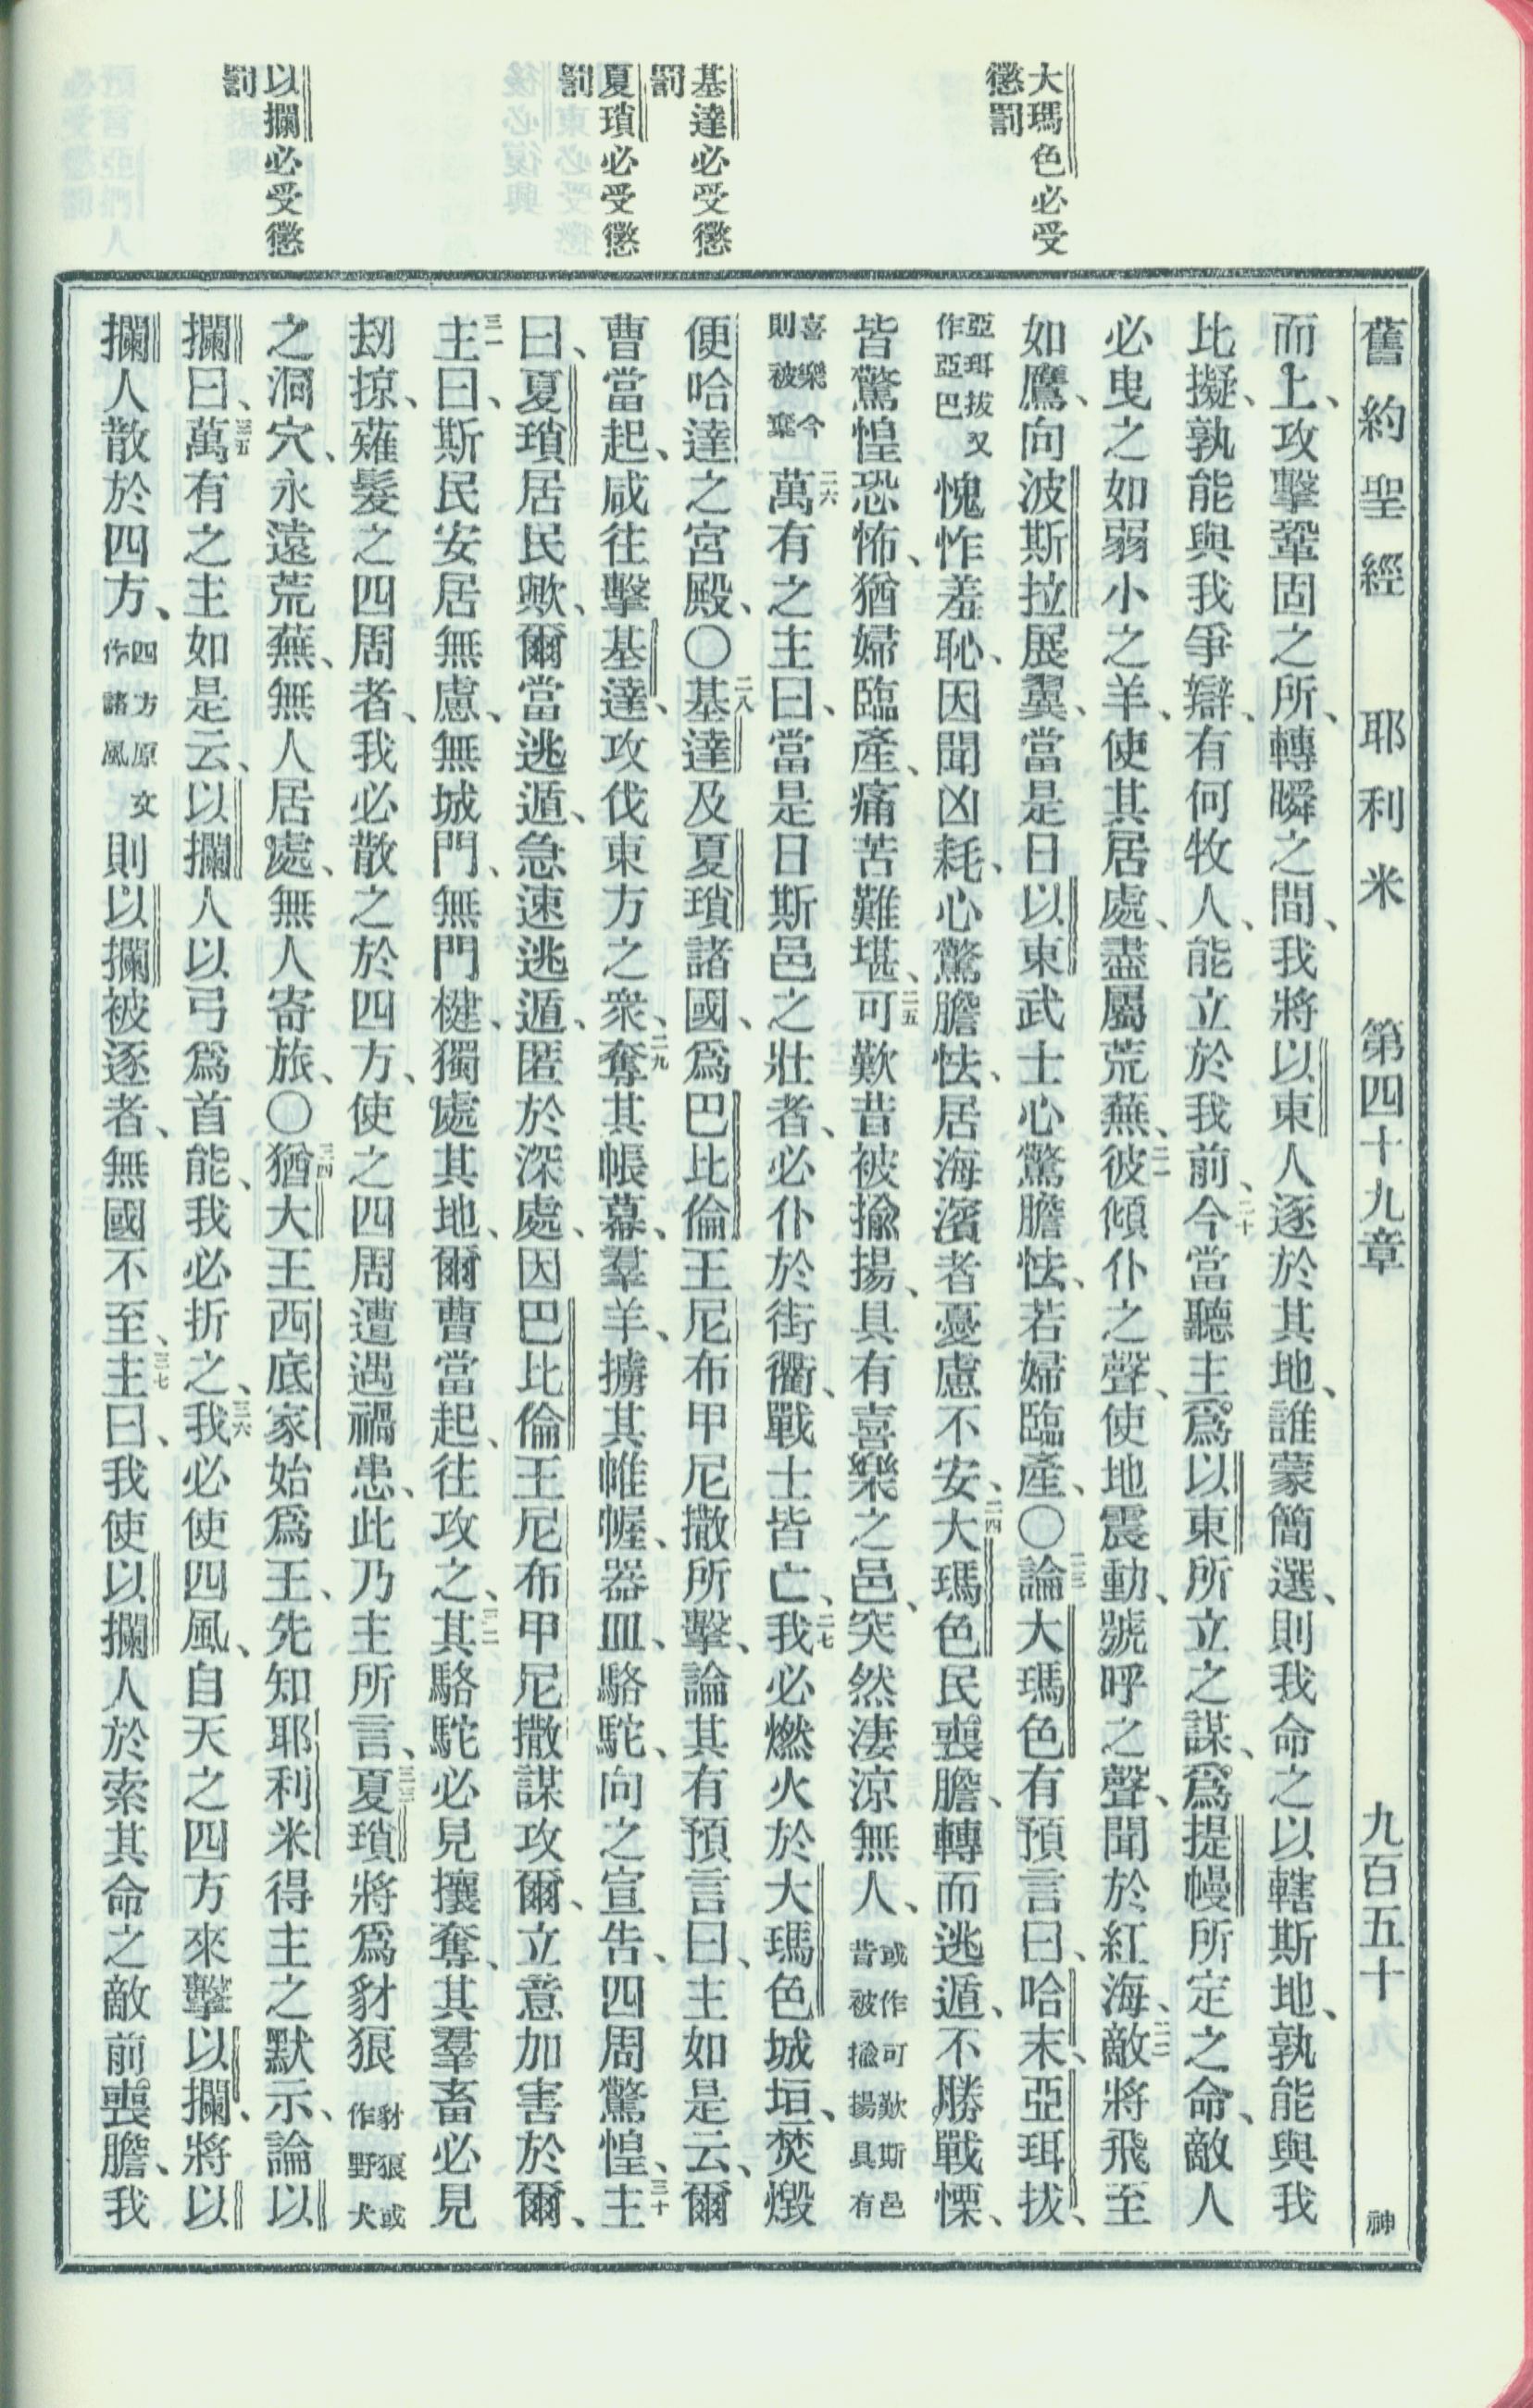 大瑪色必受
懲罰
基達必受懲
罰
夏瑣必受懲
罰
以攔必受懲
罰
舊約聖經 耶利米 第四十九章 九百五十 神
而上、攻擊鞏固之所、轉瞬之間、我將以東人逐於其地、誰蒙簡選、則我命之以轄斯地、孰能與我
比擬、孰能與我爭辯、有何牧人、能立於我前、二十今當聽主爲以東所立之謀、爲提幔所定之命、敵人
必曳之如弱小之羊、使其居處、盡屬荒蕪、二一彼傾仆之聲、使地震動、號呼之聲、聞於紅海、二二敵將飛至
如鷹、向波斯拉展翼、當是日以東武士心驚膽怯、若婦臨產、〇二三論大瑪色有預言曰、哈末、亞珥拔、
亞珥拔又作亞巴愧怍羞恥、因聞凶耗、心驚膽怯、居海濱者憂慮不安、二四大瑪色民喪膽、轉而逃遁、不勝戰慄、
皆驚惶恐怖、猶婦臨產、痛苦難堪、二五可歎昔被揄揚、具有喜樂之邑、突然淒涼無人、或作可歎斯邑昔被揄揚具有
喜樂今則被棄二六萬有之主曰、當是日斯邑之壯者、必仆於街衢、戰士皆亡、二七我必燃火於大瑪色城垣、焚燬
便哈達之宮殿、〇二八基達及夏瑣諸國、爲巴比倫王尼布甲尼撒所擊、論其有預言曰、主如是云、爾
曹當起、咸往擊基達、攻伐東方之衆、二九奪其帳幕、羣羊、擄其帷幄、器皿、駱駝、向之宣告、四周驚惶、三十主
曰、夏瑣居民歟、爾當逃遁、急速逃遁、匿於深處、因巴比倫王尼布甲尼撒謀攻爾、立意加害於爾、
三一主曰、斯民安居無慮、無城門、無門楗、獨處其地、爾曹當起、往攻之、三二其駱駝必見攘奪、其羣畜必見
刼掠、薙髮之四周者、我必散之於四方、使之四周遭遇禍患、此乃主所言、三三夏瑣將爲豺狼豺狼或作野犬
之洞穴、永遠荒蕪、無人居處、無人寄旅、〇三四猶大王西底家始爲王、先知耶利米得主之默示、論以
攔曰、三五萬有之主如是云、以攔人以弓爲首能、我必折之、三六我必使四風、自天之四方來擊以攔、將以
攔人散於四方、四方原文作諸風則以攔被逐者、無國不至、三七主曰、我使以攔人於索其命之敵前喪膽、我